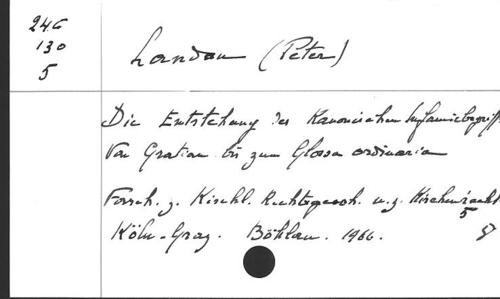 246
130
5
Landau (Peter)
Die Entstehung des Kanonischen Infamiebegriffs
Von Gratian bis zum Glossa ordinaria
Forsch. z. Kirchl. Rechtsgesch. u. z. Kirchenrecht
5
Köln-Graz. Böhlau. 1966.